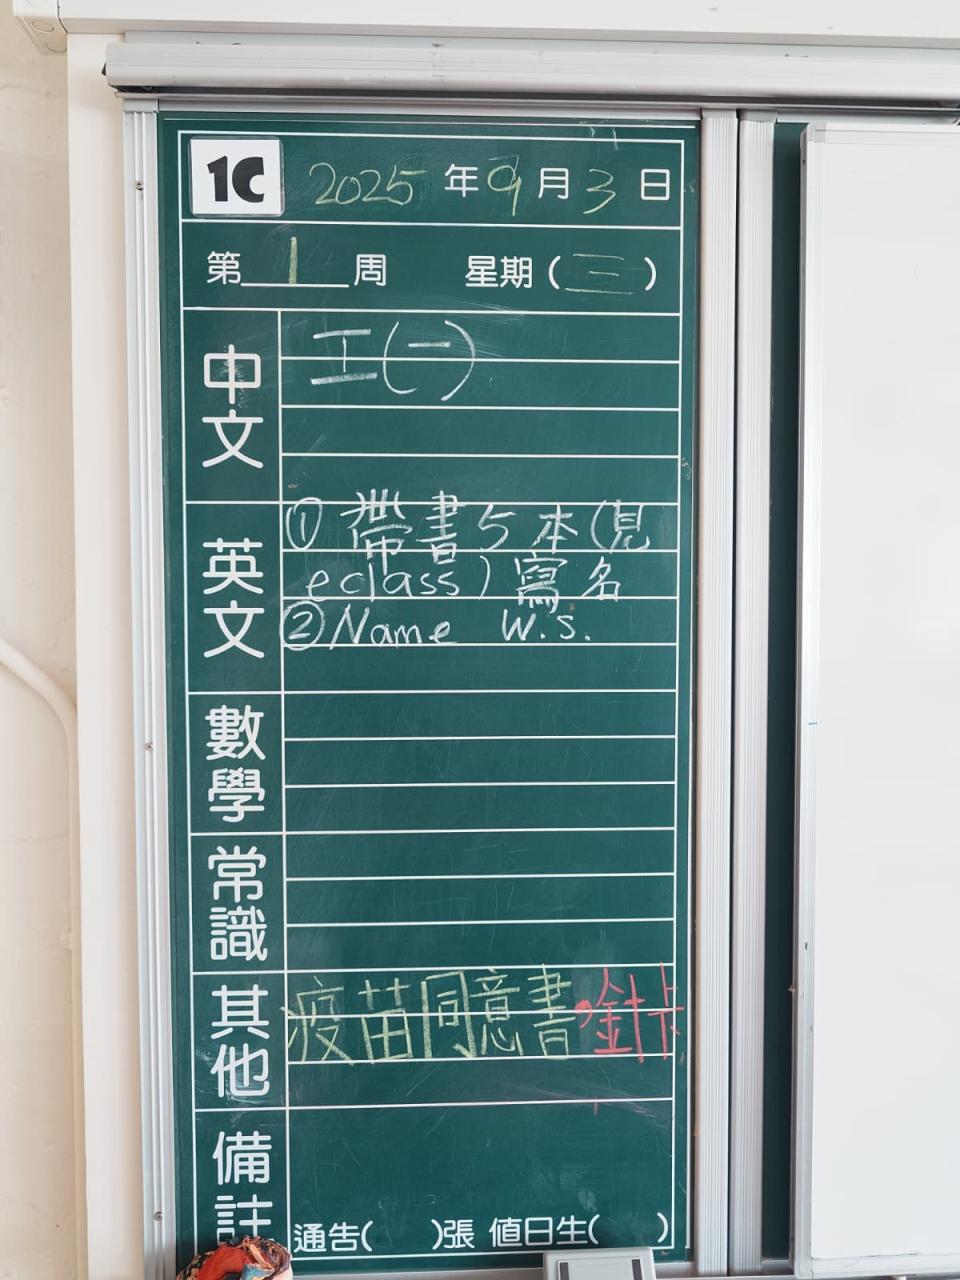 1C 2025年9月3日
第1周 星期(三)
中文
工(一)
英文
① 帶書5本(見
eclass)寫名
② Name W.S.
數學
常識
其他
疫苗同意書,針卡
備註
通告( )張 值日生( )